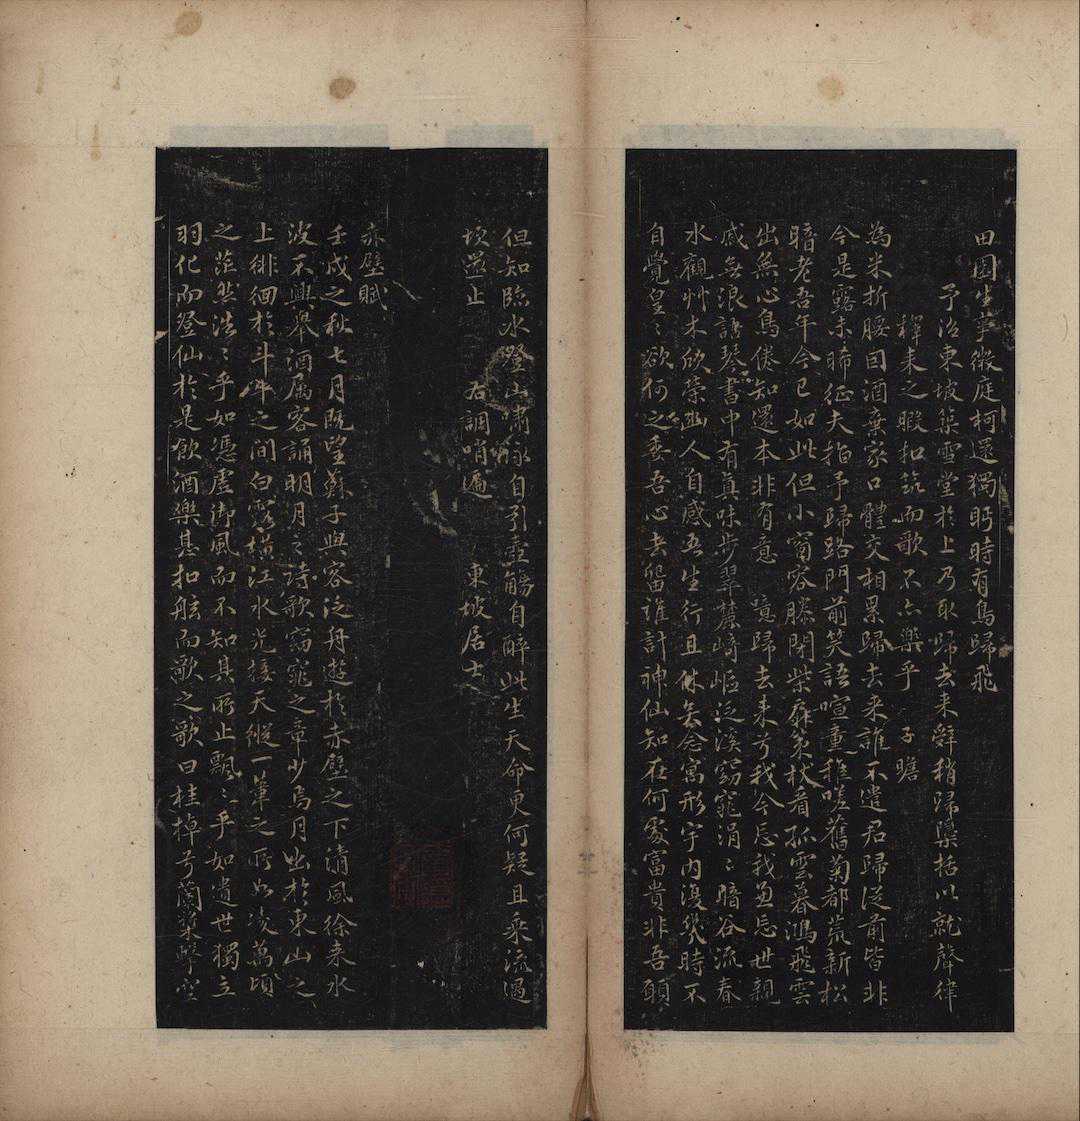 田園生事微庭柯還獨眄時有鳥歸飛
予治東坡築雪堂於上乃取歸去来辭稍歸檃括以就聲律
釋耒之暇扣筑而歌不亦樂乎　子瞻
為米折腰因酒棄家口體交相累歸去来誰不遣君歸從前皆非
今是露未晞征夫指予歸路門前笑語喧童稚嗟舊菊都荒新松
暗老吾年今已如此但小窗容膝閉柴扉策杖看孤雲暮鴻飛雲
出無心鳥倦知還本非有意　噫歸去来兮我今忘我兼忘世親
戚無浪語琴書中有真味步翠麓崎嶇泛溪窈窕涓〻暗谷流春
水觀艸木欣榮幽人自感吾生行且休矣念寓形宇内復幾時不
自覺皇〻欲何之委吾心去留誰計神仙知在何處富貴非吾願
但知臨水登山嘯詠自引壺觴自醉此生天命更何疑且乘流遇
坎還止　右調哨遍　東坡居士
赤壁賦
壬戌之秋七月既望蘇子與客泛舟遊於赤壁之下清風徐来水
波不興舉酒属客誦明月之詩歌窈窕之章少焉月出於東山之
上徘徊於斗牛之間白露橫江水光接天縱一葦之所如淩萬頃
之茫然浩〻乎如憑虛御風而不知其所止飄〻乎如遺世獨立
羽化而登仙於是飲酒樂甚扣舷而歌之歌曰桂棹兮蘭槳擊空